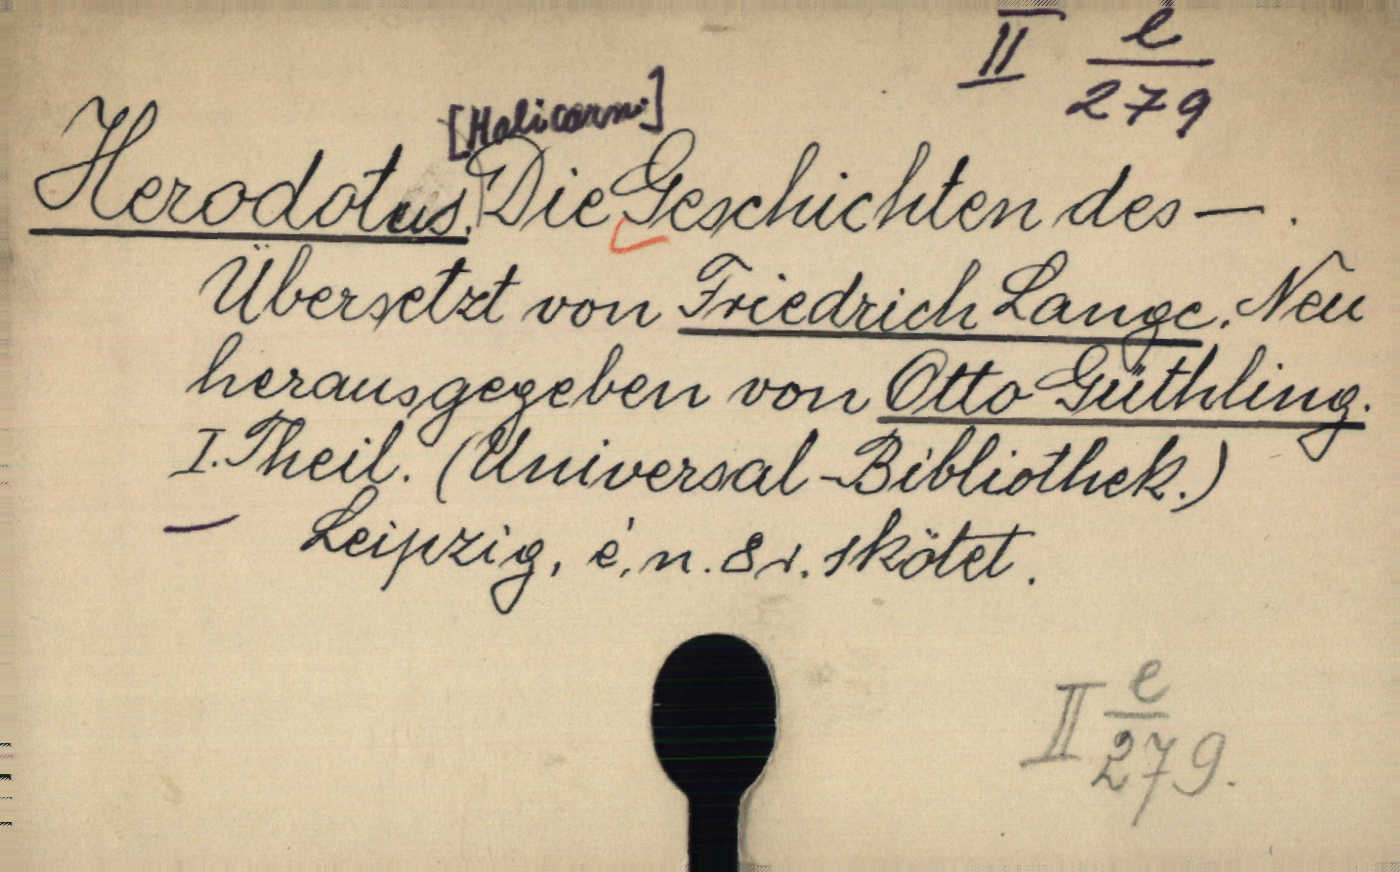 II e
279
[Halicarn.]
Herodotus. Die Geschichten des — .
Übersetzt von Friedrich Lange. Neu
herausgegeben von Otto Güthling.
I. Theil. (Universal-Bibliothek.)
— Leipzig, é. n. 8r. 1 kötet.
II e
279.